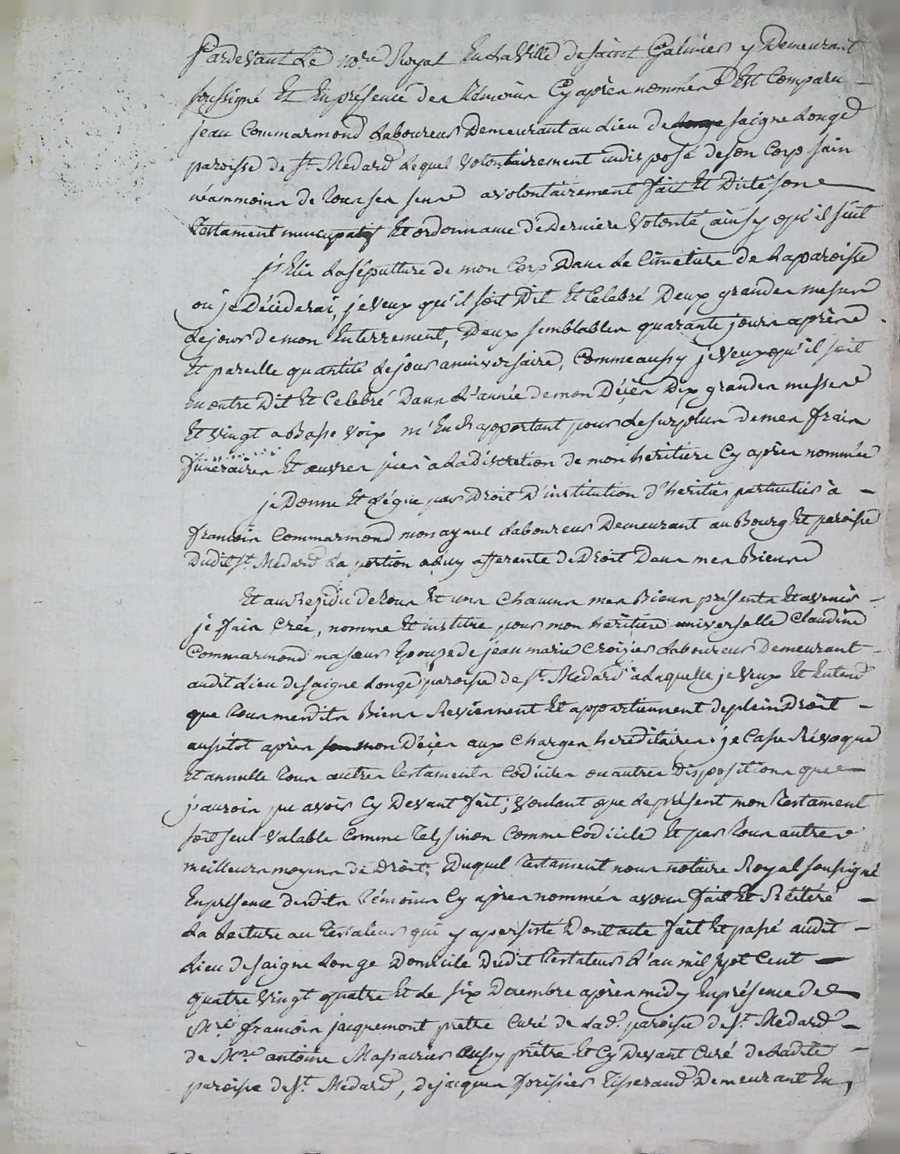 Pardevant Le no.re Royal En La Ville de saint Galmier y Demeurant
soussigné Et En présence des Témoins Cy après nommés Est Comparu
jean Commarmond Laboureur Demeurant au Lieu de saigne Longe
paroisse de St. Medard Lequel volontairement indisposé de son Corp sain
néammoins de tous ses sens a volontairement fait Et Dicté son
Testament nuncupatif Et ordonnance de Derniere Volonté ainsy qu'il suit
j'Elis La sépulture de mon Corp Dans Le Cimetiere de La paroisse
ou je Décéderai, je Veux qu'il soit Dit Et Celebré Deux grandes messes
Le jour de mon Enterrement, Deux semblables quarante jours après
Et pareille quantité Le jour anniversaire, Comme aussy je Veux qu'il soit
En outre Dit Et Celebré Dans L'année de mon Décès Dix grandes messes
Et Vingt a Basse Voix m'En Rapportant pour Le surplus de mes frais
funéraires Et œuvres pies à La discretion de mon héritiere Cy après nommée
je Donne Et Lègue par Droit D'institution D'heritier particulier à
francois Commarmond mon aynel Laboureur Demeurant au Bourg Et paroisse
Dudit St. Medard La portion a Luy afferante de Droit Dans mes Biens
Et au Residu de tous Et uns Chacuns mes Biens presents Et avenir
je fais Crée, nomme Et institue pour mon héritiere universelle Claudine
Commarmond ma sœur Epouze de jean marie Croizier Laboureur Demeurant
audit Lieu de saigne Longe paroisse de St. Medard à Laquelle je Veux Et Entend
que tous mesdits Biens Reviennent Et appartiennent de plein Droit
aussitot après mon Décès aux Charges hereditaires; je Casse Révoque
Et annulle tous autres Testaments Codiciles ou autres Dispositions que
j'aurois pu avoir Cy Devant fait; Voulant que Le présent mon Testament
soit seul Valable Comme Tel sinon Comme Codicile Et par tous autres
meilleurs moyens de Droit. Duquel Testament nous notaire Royal soussigné
En présence desdits Témoins Cy après nommés avons fait Et Réitéré
La Lecture au Testateur qui y a persisté Dont acte fait Et passé audit
Lieu de saigne Longe Domicile Dudit Testateur L'an mil sept Cent
quatre Vingt quatre Et Le six Decembre après midy En présence de
Mre. francois jacquemont prêtre Curé de Lad. paroisse de St. Medard
de Mre. antoine Massacrier aussy prêtre Et Cy Devant Curé de Ladite
paroisse de St. Medard, de jacques forissier Tisserand Demeurant En